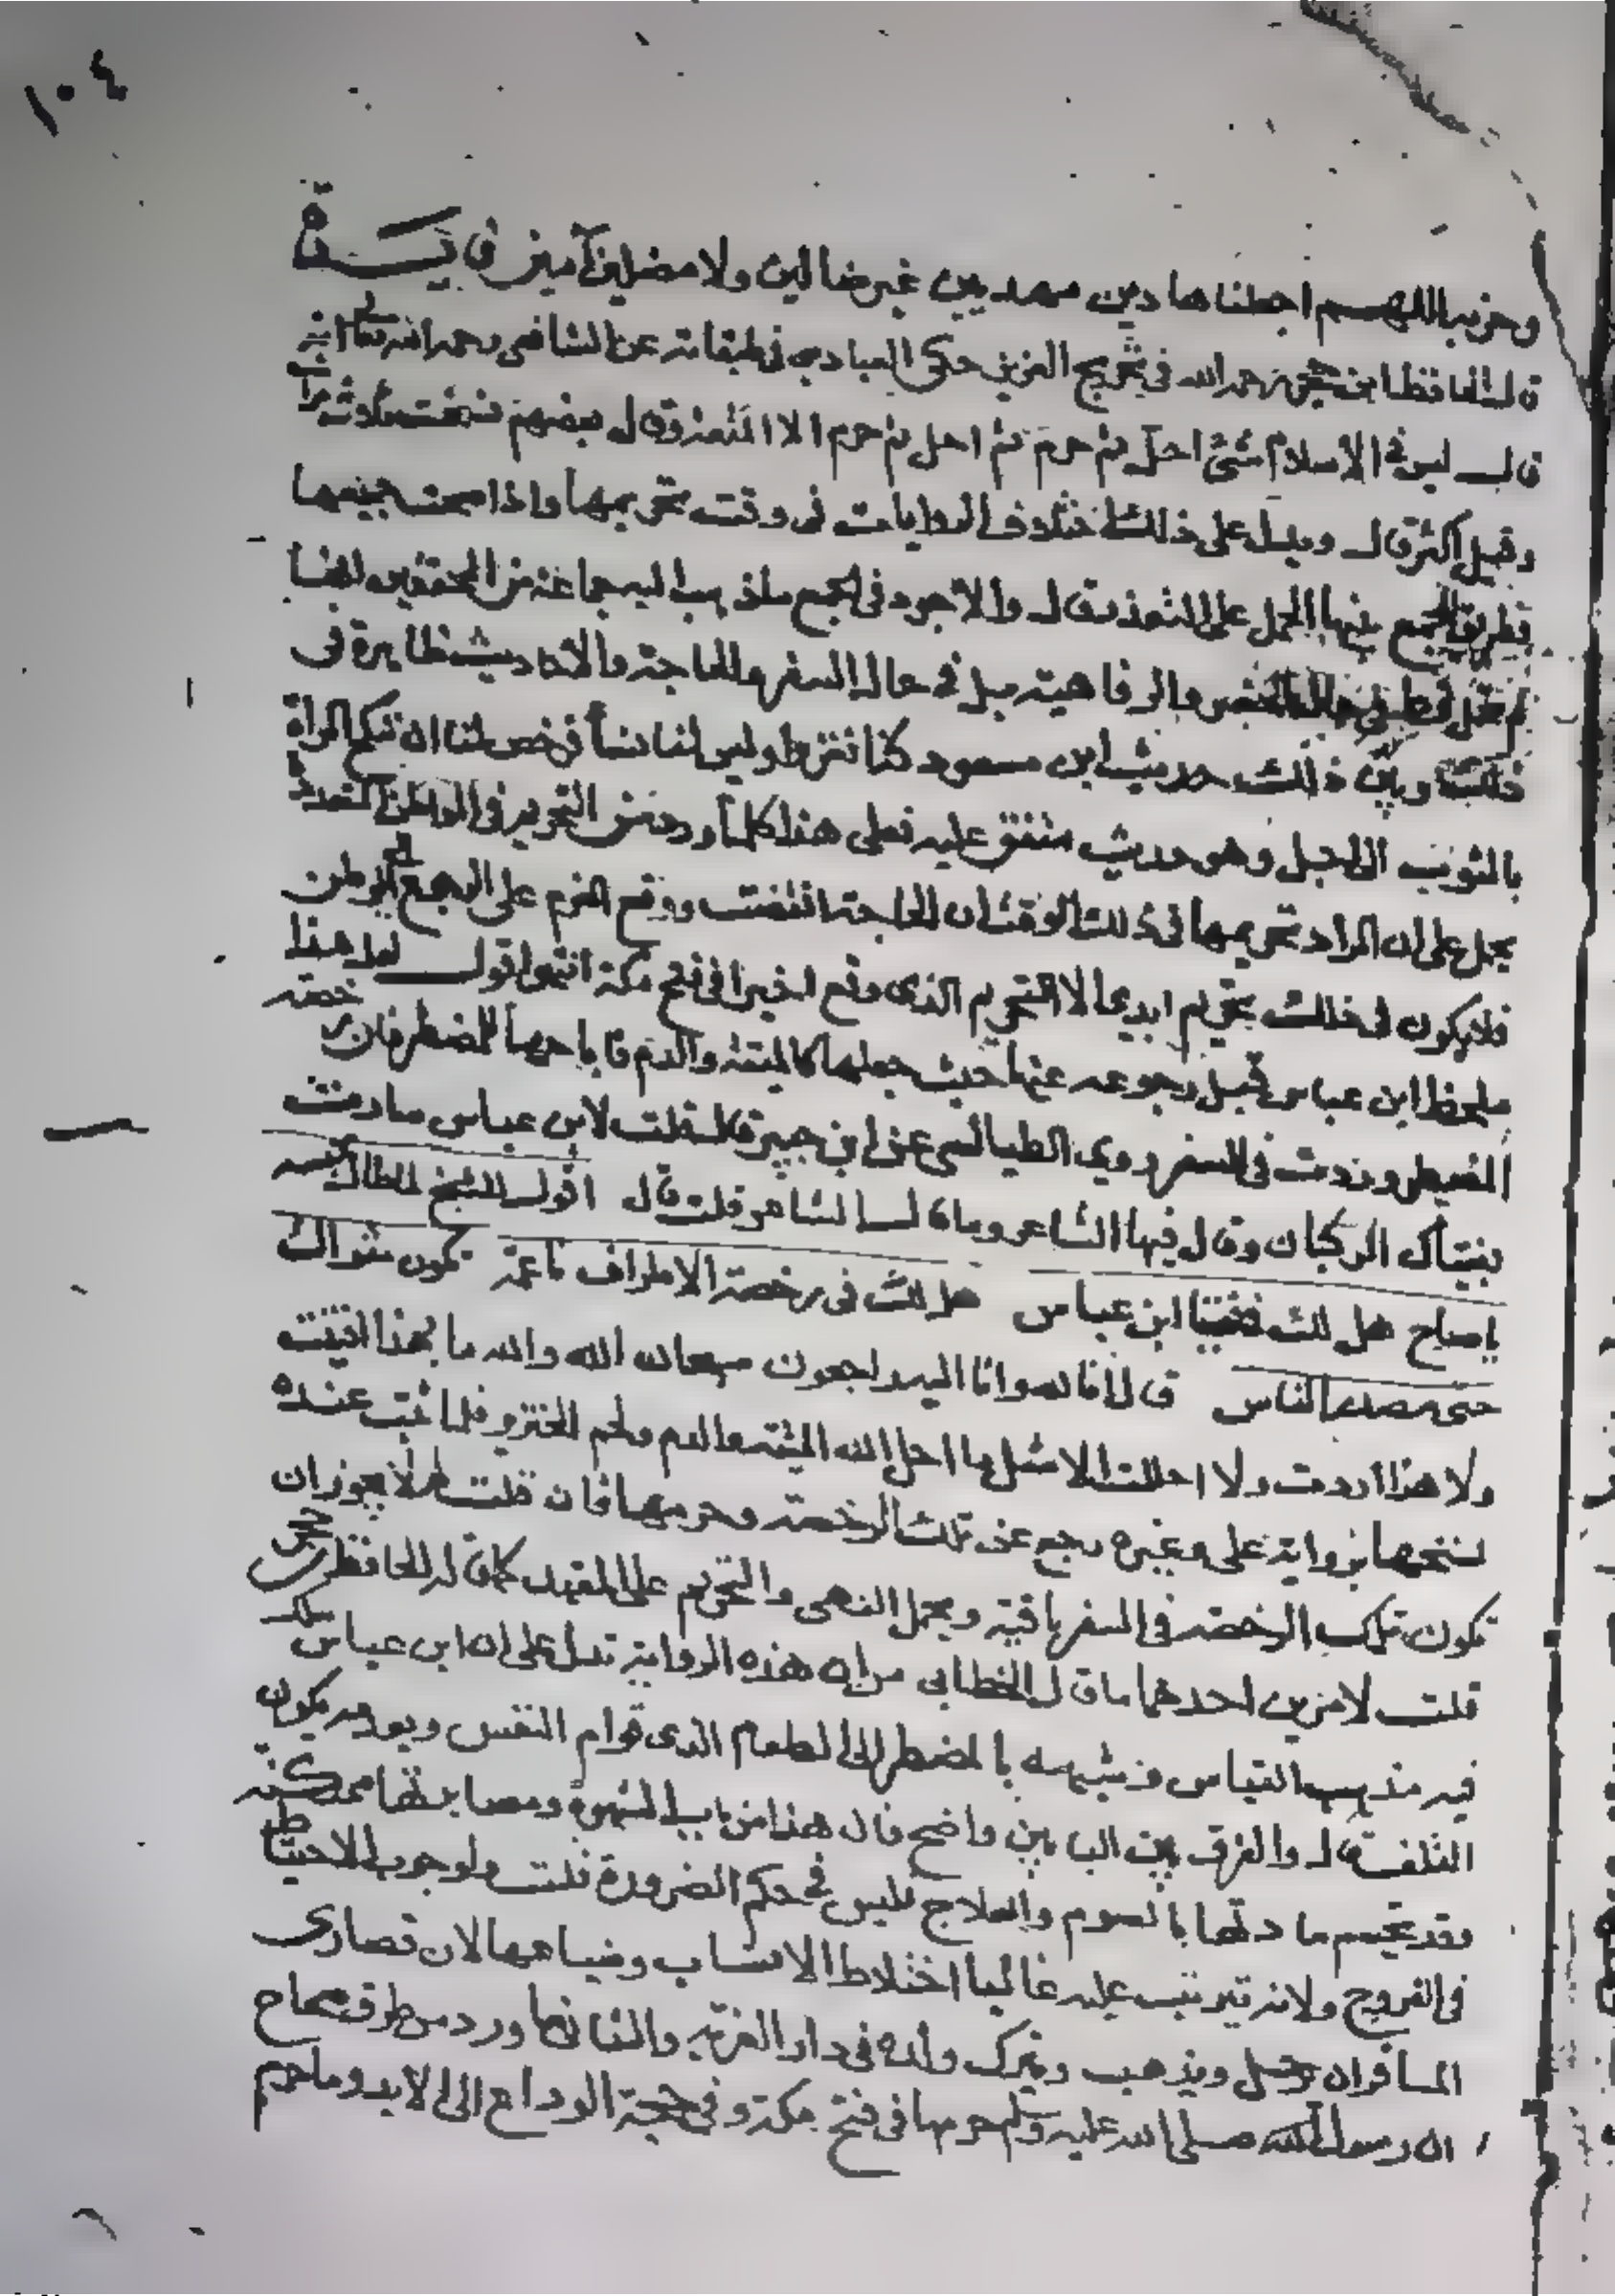 ١٠٤
وحزبه اللهم اجعلنا هادين مهديين غير ضالين ولا مضلين آمين فايدة
قال الحافظ ابن حجر رحمه الله في تخريج العزيز حكى العبادي في طبقاته عن الشافعي رحمه الله تعالى انه
قال ليس في الاسلام شئ احل ثم حرم ثم احل ثم حرم الا المتعة وقال بعضهم نسخت ثلاث مرات
وقيل اكثر قال ويدل على ذلك اختلاف الروايات في وقت تحريمها واذا صحت جميعها
فطريق الجمع بينها الحمل على التعدد قال والاجود في الجمع ما ذهب اليه جماعة من المحققين انها
لم تحل قط في حال الحضر والرفاهية بل في حال السفر والحاجة والاحاديث ظاهرة في
ذلك ويبين ذلك حديث ابن مسعود كنا نغزوا وليس لنا نسأ فرخص لنا ان ننكح المراة
بالثوب الى اجل وهو حديث متفق عليه فعلى هذا كلما ورد من التحريم في المواطن المتعددة
يحمل على ان المراد تحريمها في ذلك الوقت ان الحاجة انقضت ووقع العزم على الرجوع الى الوطن
فلا يكون في ذلك تحريم ابدي الا التحريم الذي وقع اخيرا في فتح مكة انتهى اقول لعل هذا
ملحظ ابن عباس قبل رجوعه عنها حيث جعلها كالميتة والدم فاباحها للمضطر فان رخصته
في السفر روى الطيالسي عن ابن جبير قال قلت لابن عباس سارت
بفتياك الركبان وقال فيها الشاعر وما قال الشاعر قلت قال اقول للشيخ لما طال مجلسه
يا صاح هل لك في فتيا ابن عباس هل لك في رخصة الاطراف ناعمة تكون مثواك
حتى مصدر الناس قال انا لله وانا اليه راجعون سبحان الله والله ما بهذا افتيت
ولا هذا اردت ولا احللت الا مثل ما احل الله الميتة والدم ولحم الخنزير فلما ثبت عنده
نسخها برواية علي وغيره رجع عن تلك الرخصة وحرمها فان قلت لم لا يجوز ان
تكون تلك الرخصة في السفر باقية ويحمل النهي والتحريم على المقيد كما قال الحافظ ابن حجر
قلت لامرين احدهما ما قال الخطابي من ان هذه الرواية تدل على ان ابن عباس سلك
فيه مذهب القياس وشبهه بالمضطر الى الطعام الذي قوام النفس وبعدمه يكون
التلف قال والفرق بين البابين واضح قال هذا من باب الشهوة ومصابرتها ممكنة
وقد تحسم مادتها بالصوم والعلاج فليس في حكم الضرورة قلت ولوجوب الاحتياط
في الفروج ولانه يترتب عليه غالبا اختلاط الانساب وضياعها لان قصارى
المسافر ان يرحل ويذهب ويترك ولده في دار الغربة والثاني ما ورد من طرق صحاح
ان رسول الله صلى الله عليه وسلم حرمها في فتح مكة وفي حجة الوداع الى الابد وما حرم